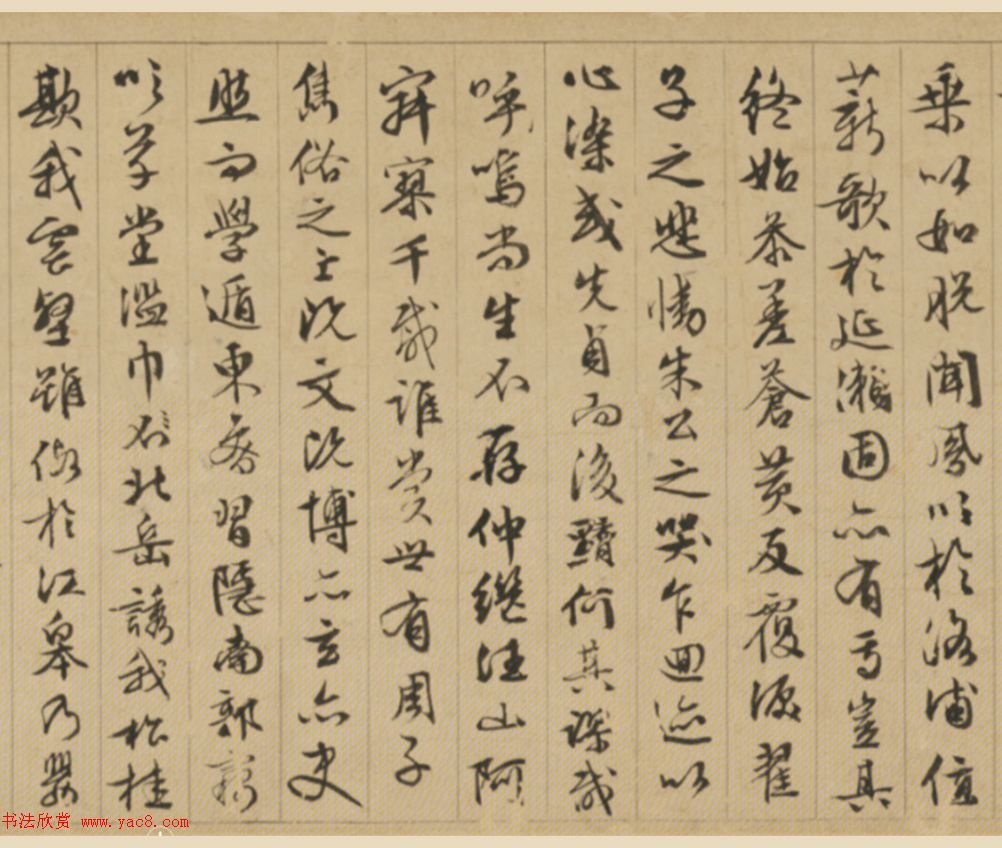 乗其如脱聞鳳吹於洛浦值
薪歌於延瀨固亦有焉豈其
終始參差蒼黃反覆淚翟
子之悲慟朱公之哭乍迴迹以
心染或先貞而後黷何其謬哉
呼嗚尚生不存仲継往山阿
寂寥千載誰賞世有周子
雋俗之士既文既博亦玄亦史
然而學遁東魯習隱南郭竊
吹草堂濫巾不北岳誘我松桂
欺我雲壑雖假於江皋乃嬰
书法欣赏 www.yac8.com